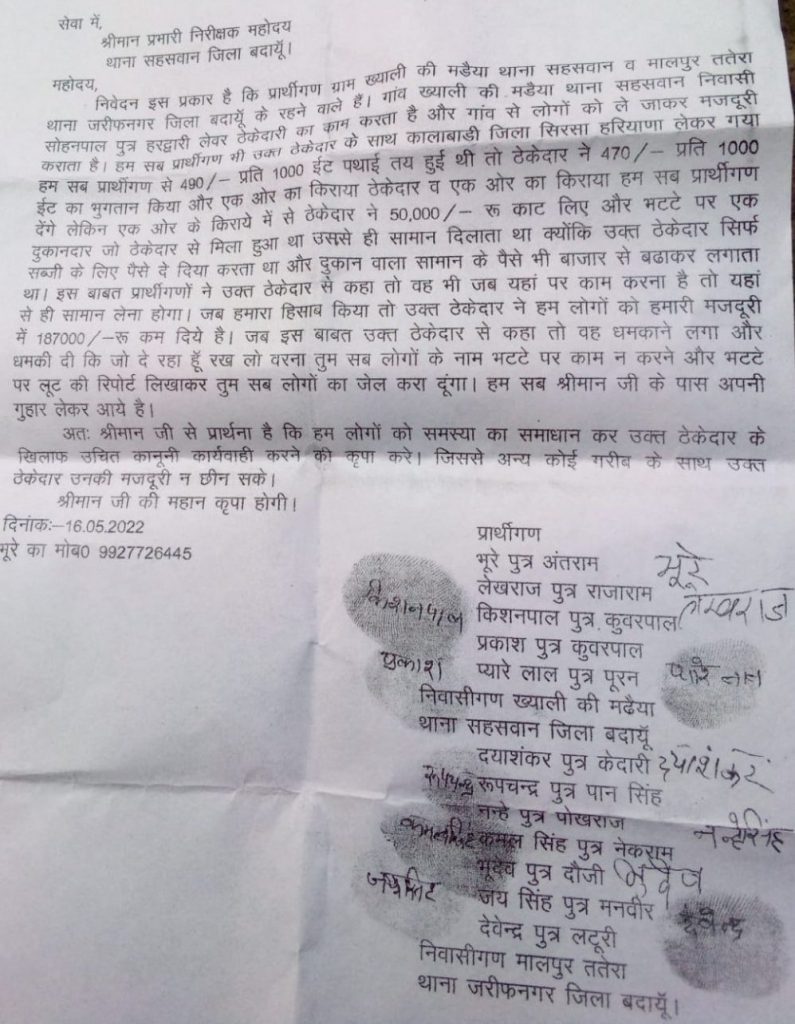 सेवा में,
श्रीमान प्रभारी निरीक्षक महोदय
थाना सहसवान जिला बदायूँ।
महोदय,
निवेदन इस प्रकार है कि प्रार्थीगण ग्राम ख्याली की मडैया थाना सहसवान व मालपुर ततेरा
थाना जरीफनगर जिला बदायूँ के रहने वाले हैं। गांव ख्याली की मडैया थाना सहसवान निवासी
सोहनपाल पुत्र हरद्वारी लेवर ठेकेदारी का काम करता है और गांव से लोगों को ले जाकर मजदूरी
कराता है। हम सब प्रार्थीगण भी उक्त ठेकेदार के साथ कालाबाडी जिला सिरसा हरियाणा लेकर गया
हम सब प्रार्थीगण से 490/– प्रति 1000 ईट पथाई तय हुई थी तो ठेकेदार ने 470/– प्रति 1000
ईट का भुगतान किया और एक ओर का किराया ठेकेदार व एक ओर का किराया हम सब प्रार्थीगण
देंगे लेकिन एक ओर के किराये में से ठेकेदार ने 50,000/– रू काट लिए और भटटे पर एक
दुकानदार जो ठेकेदार से मिला हुआ था उससे ही सामान दिलाता था क्योंकि उक्त ठेकेदार सिर्फ
सब्जी के लिए पैसे दे दिया करता था और दुकान वाला सामान के पैसे भी बाजार से बढाकर लगाता
था। इस बाबत प्रार्थीगणों ने उक्त ठेकेदार से कहा तो वह भी जब यहां पर काम करना है तो यहां
से ही सामान लेना होगा। जब हमारा हिसाब किया तो उक्त ठेकेदार ने हम लोगों को हमारी मजदूरी
में 187000/–रू कम दिये है। जब इस बाबत उक्त ठेकेदार से कहा तो वह धमकाने लगा और
धमकी दी कि जो दे रहा हूँ रख लो वरना तुम सब लोगों के नाम भटटे पर काम न करने और भटटे
पर लूट की रिपोर्ट लिखाकर तुम सब लोगों का जेल करा दूंगा। हम सब श्रीमान जी के पास अपनी
गुहार लेकर आये है।
अतः श्रीमान जी से प्रार्थना है कि हम लोगों को समस्या का समाधान कर उक्त ठेकेदार के
खिलाफ उचित कानूनी कार्यवाही करने की कृपा करे। जिससे अन्य कोई गरीब के साथ उक्त
ठेकेदार उनकी मजदूरी न छीन सके।
श्रीमान जी की महान कृपा होगी।
दिनांकः–16.05.2022
भूरे का मोब0 9927726445
प्रार्थीगण
भूरे पुत्र अंतराम भूरे
लेखराज पुत्र राजाराम लेखराज
किशनपाल किशनपाल पुत्र कुवरपाल
प्रकाश पुत्र कुवरपाल
प्रकाश प्यारे लाल पुत्र पूरन प्यारे लाल
निवासीगण ख्याली की मढैया
थाना सहसवान जिला बदायूँ
दयाशंकर पुत्र केदारी दयाशंकर
रूपचन्द्र रूपचन्द्र पुत्र पान सिंह
नन्हे पुत्र पोखराज नन्हेसिंह
कमलसिंह कमल सिंह पुत्र नेकराम
भूदेव पुत्र दौजी भूदेव
जयसिंह जय सिंह पुत्र मनवीर
देवेन्द्र पुत्र लटूरी देवेन्द्र
निवासीगण मालपुर ततेरा
थाना जरीफनगर जिला बदायूँ।